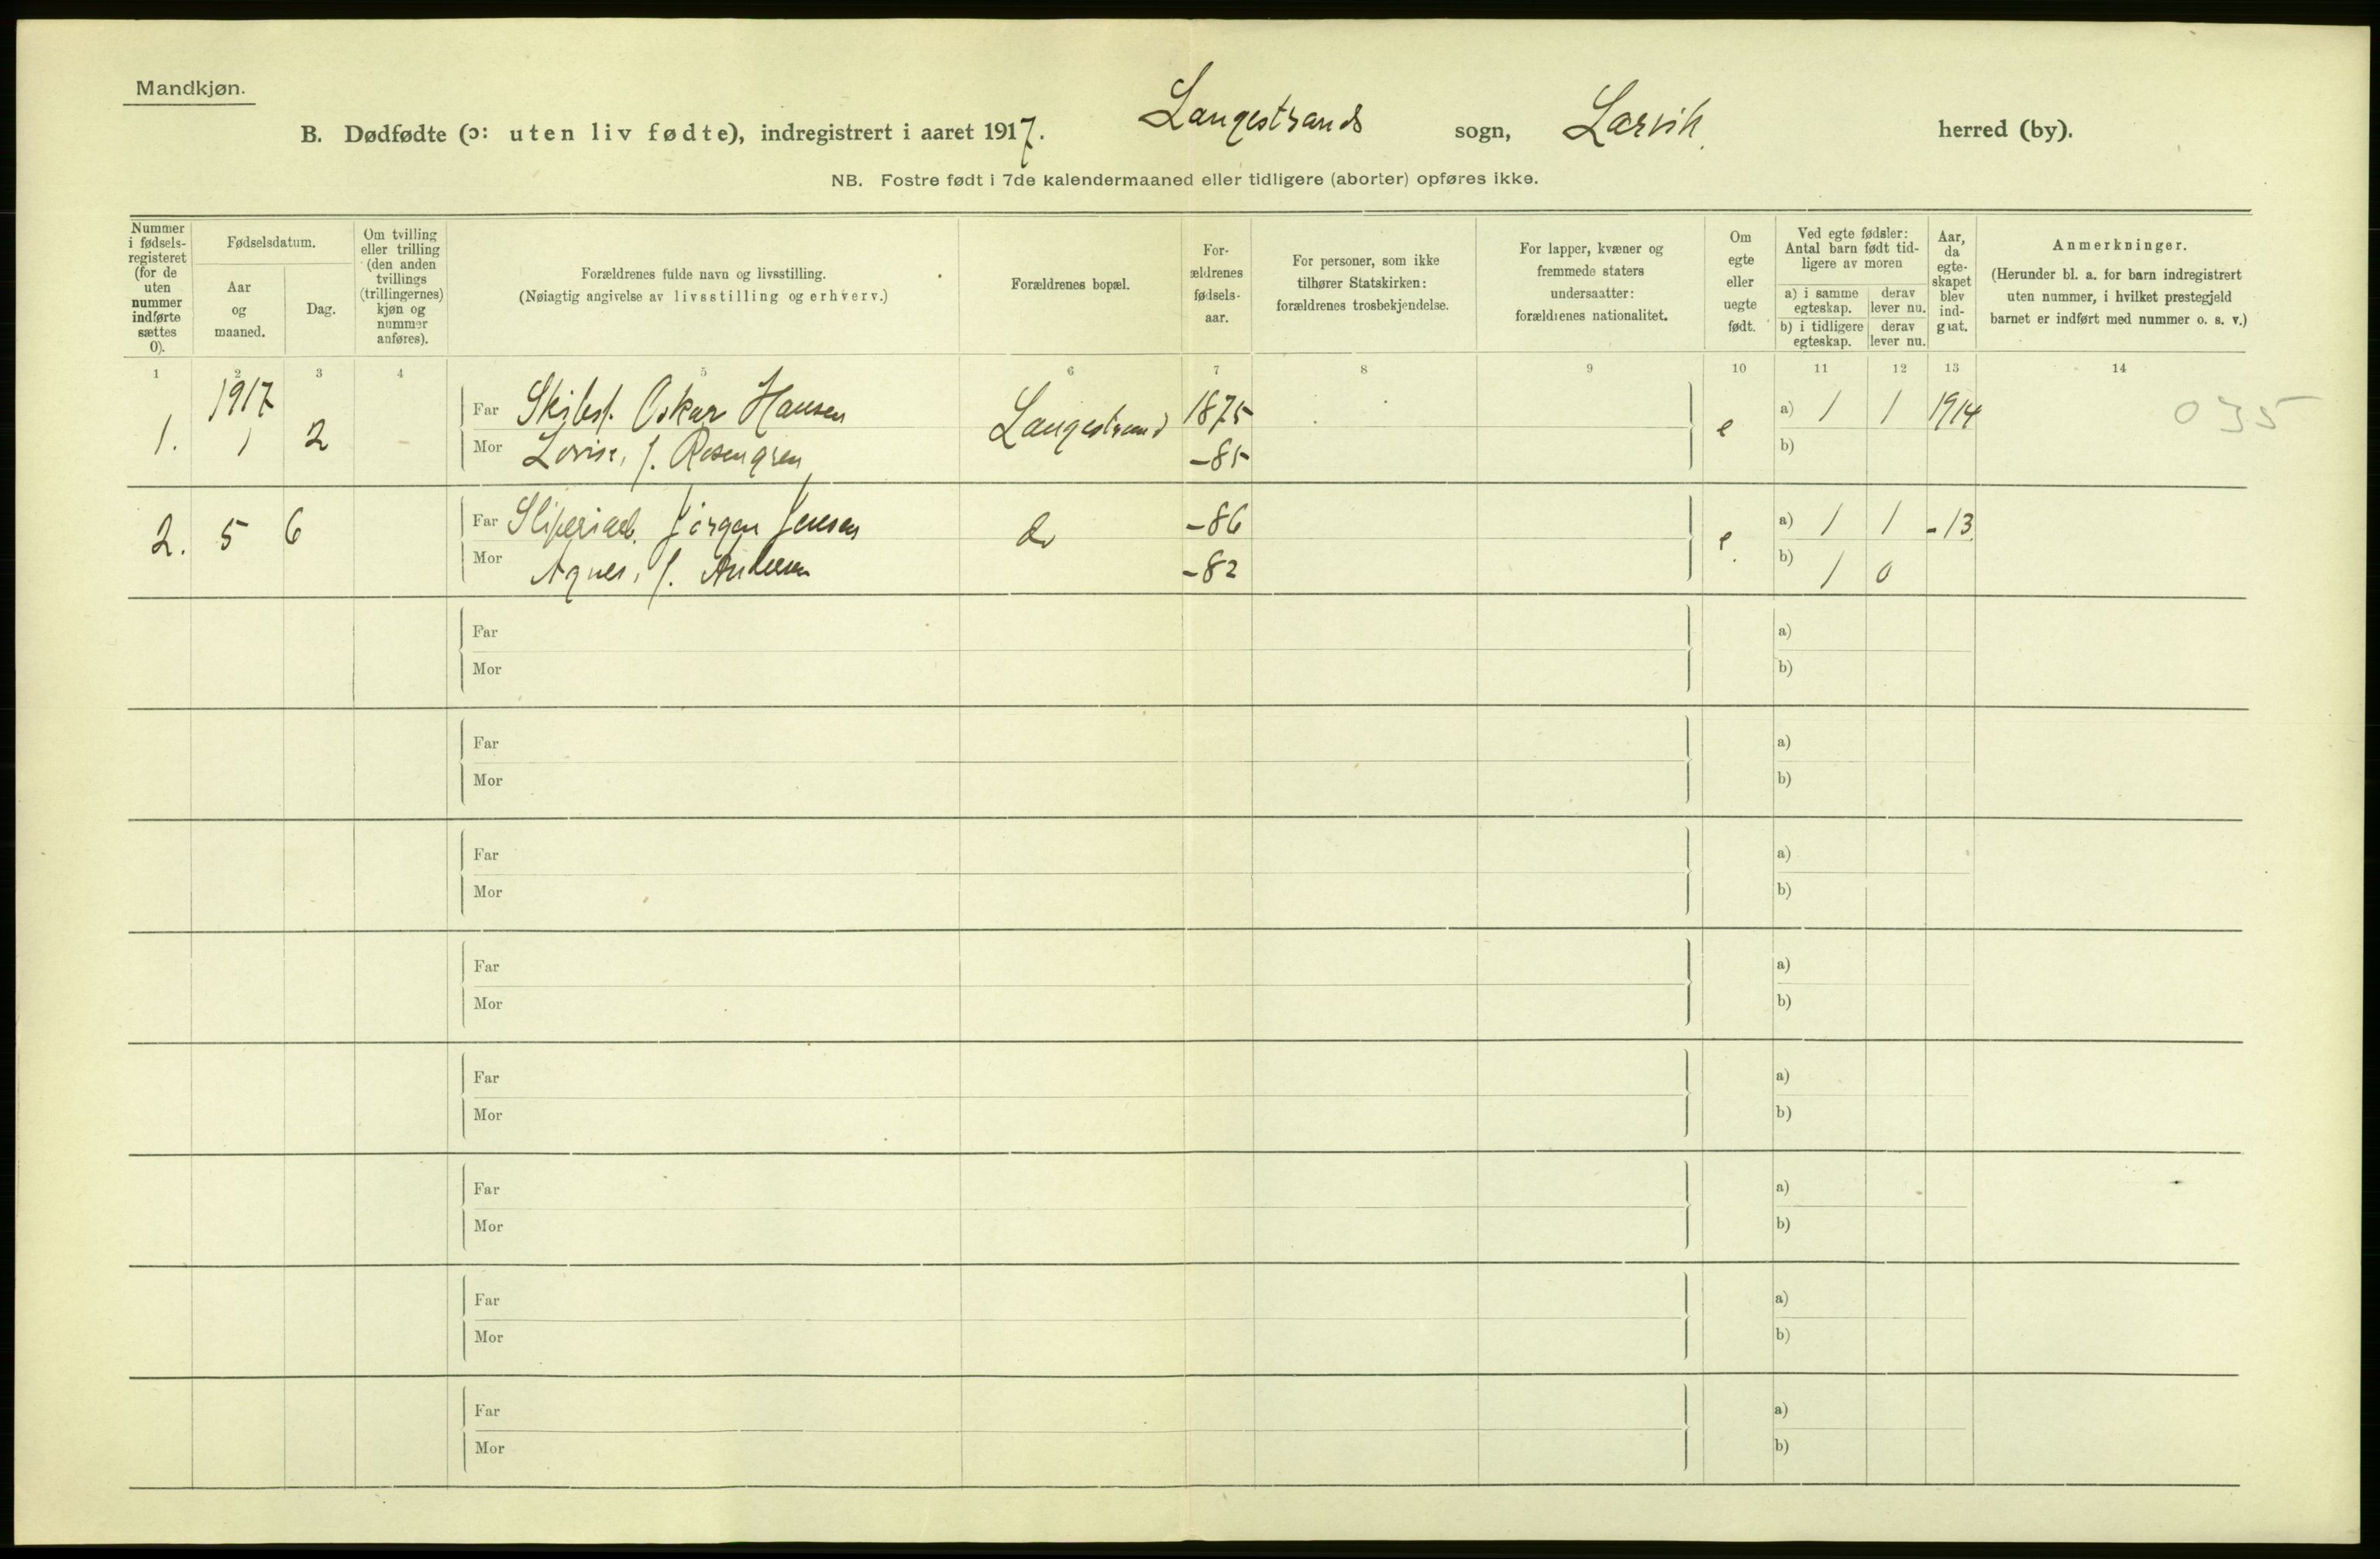 Mandkjøn.
B. Dødfødte (ɔ: uten liv fødte), indregistrert i aaret 1917. Langestrands sogn, Larvik herred (by).
NB. Fostre født i 7de kalendermaaned eller tidligere (aborter) opføres ikke.
Nummer i fødsels-registeret (for de uten nummer indførte sættes 0).
Fødselsdatum.
Aar og maaned.
Dag.
Om tvilling eller trilling (den anden tvillings (trillingernes) kjøn og nummer anføres).
Forældrenes fulde navn og livsstilling.
(Nøiagtig angivelse av livsstilling og erhverv.)
Forældrenes bopæl.
For-ældrenes fødsels-aar.
For personer, som ikke tilhører Statskirken: forældrenes trosbekjendelse.
For lapper, kvæner og fremmede staters undersaatter: forældrenes nationalitet.
Om egte eller uegte født.
Ved egte fødsler: Antal barn født tid-ligere av moren
a) i samme egteskap.
derav lever nu.
b) i tidligere egteskap.
derav lever nu.
Aar, da egte-skapet blev ind-gaat.
Anmerkninger.
(Herunder bl. a. for barn indregistrert uten nummer, i hvilket prestegjeld barnet er indført med nummer o. s. v.)
1 2 3 4 5 6 7 8 9 10 11 12 13 14
1917
1. 1 2 - Far Skibsf. Oskar Hansen Langestrand 1875 e a) 1 1 1914 035
Mor Lovise, f. Rosengren -85 b)
2. 5 6 Far Sliperiarb. Jörgen Jensen do -86 e. a) 1 1 -13
Mor Agnes, f. Andersen -82 b) 1 0
Far a)
Mor b)
Far a)
Mor b)
Far a)
Mor b)
Far a)
Mor b)
Far a)
Mor b)
Far a)
Mor b)
Far a)
Mor b)
Far a)
Mor b)